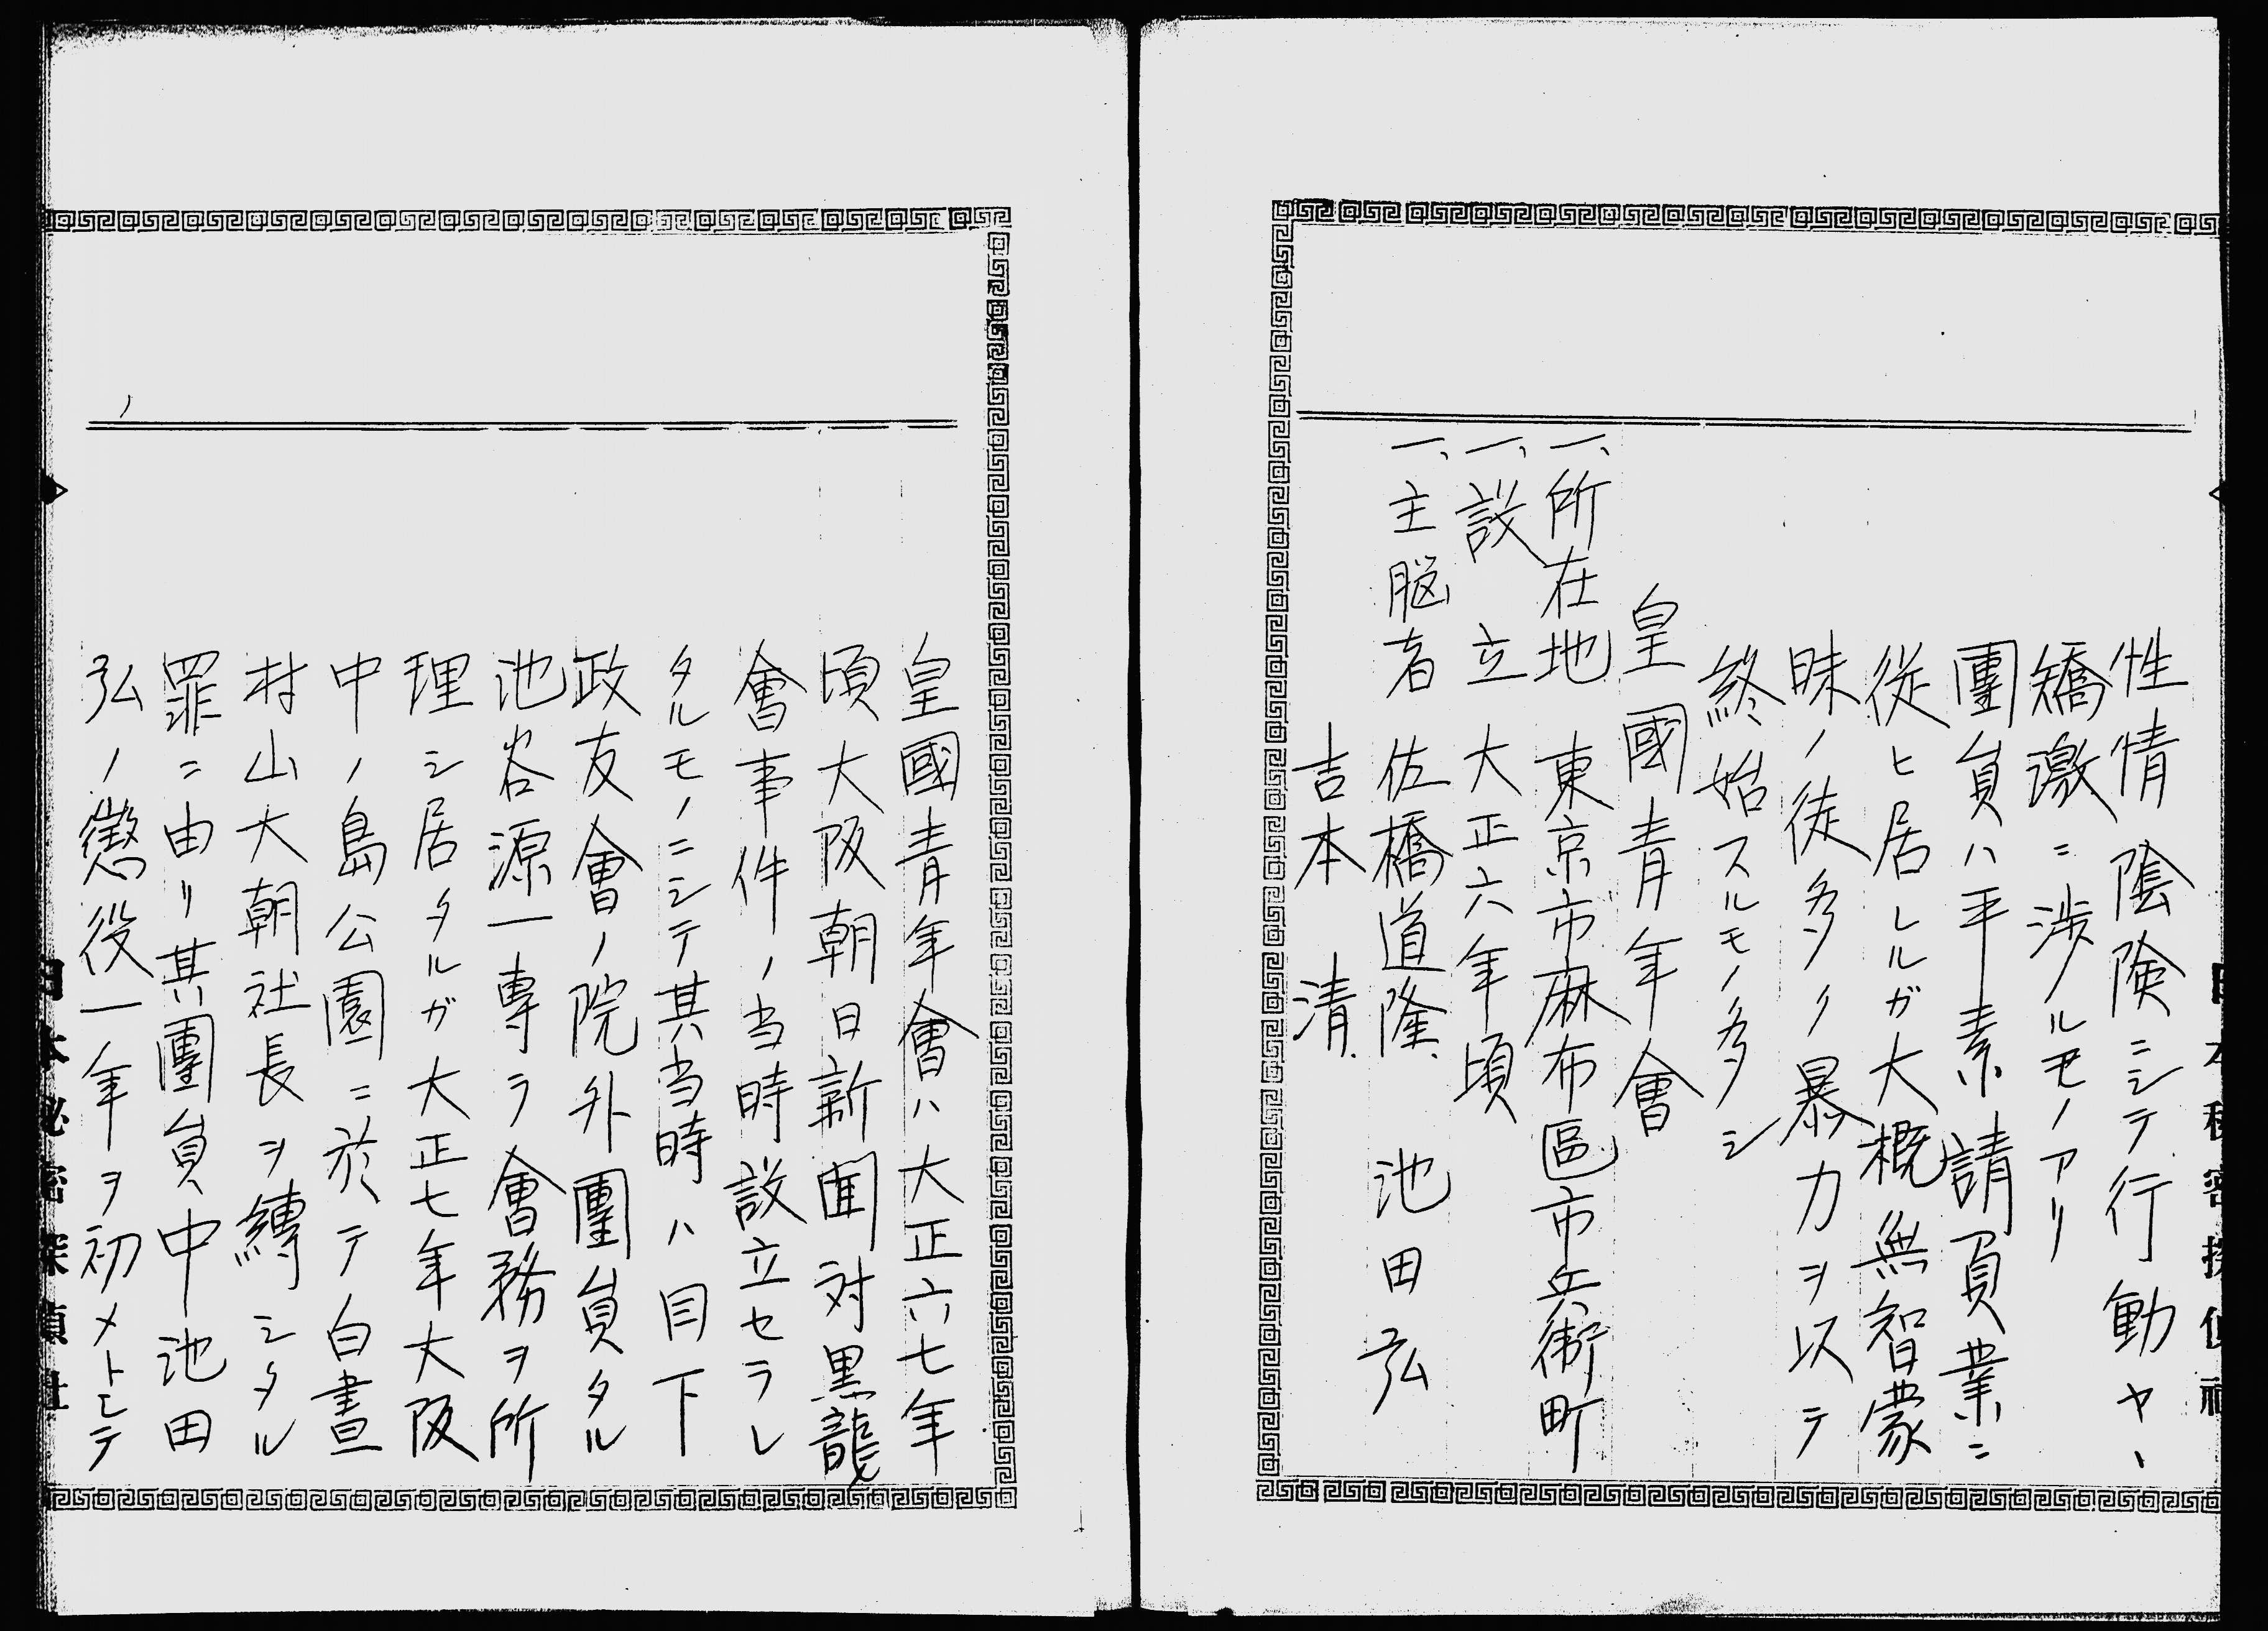 性情陰険ニシテ行動ヤヽ
矯激ニ渉ルモノアリ
團員ハ平素請負業ニ
從ヒ居レルガ大概無智蒙
昧ノ徒多ク暴力ヲ以テ
終始スルモノ多シ
皇國青年會
一、所在地 東京市麻布區市兵衛町
一、設立 大正六年頃
一、主脳者 佐橋道隆、池田弘
吉本清、
皇國青年會ハ大正六七年
頃大阪朝日新聞対黒龍
會事件ノ当時設立セラレ
タルモノニシテ其当時ハ目下
政友會ノ院外團員タル
池谷源一専ラ會務ヲ所
理シ居タルガ大正七年大阪
中ノ島公園ニ於テ白晝
村山大朝社長ヲ縛シタル
罪ニ由リ其團員中池田
弘ノ懲役一年ヲ初メトシテ
日本秘密探偵社